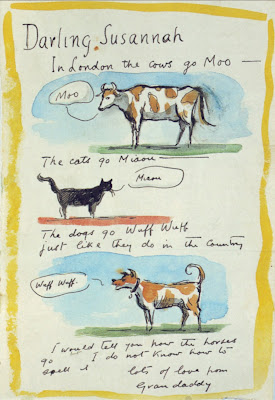 Darling Susannah
In London the cows go Moo —
Moo
The cats go Miaou —
Miaou
The dogs go Wuff Wuff
just like they do in the Country
Wuff Wuff.
I would tell you how the horses
go I do not know how to
spell it
lots of love from
Grandaddy